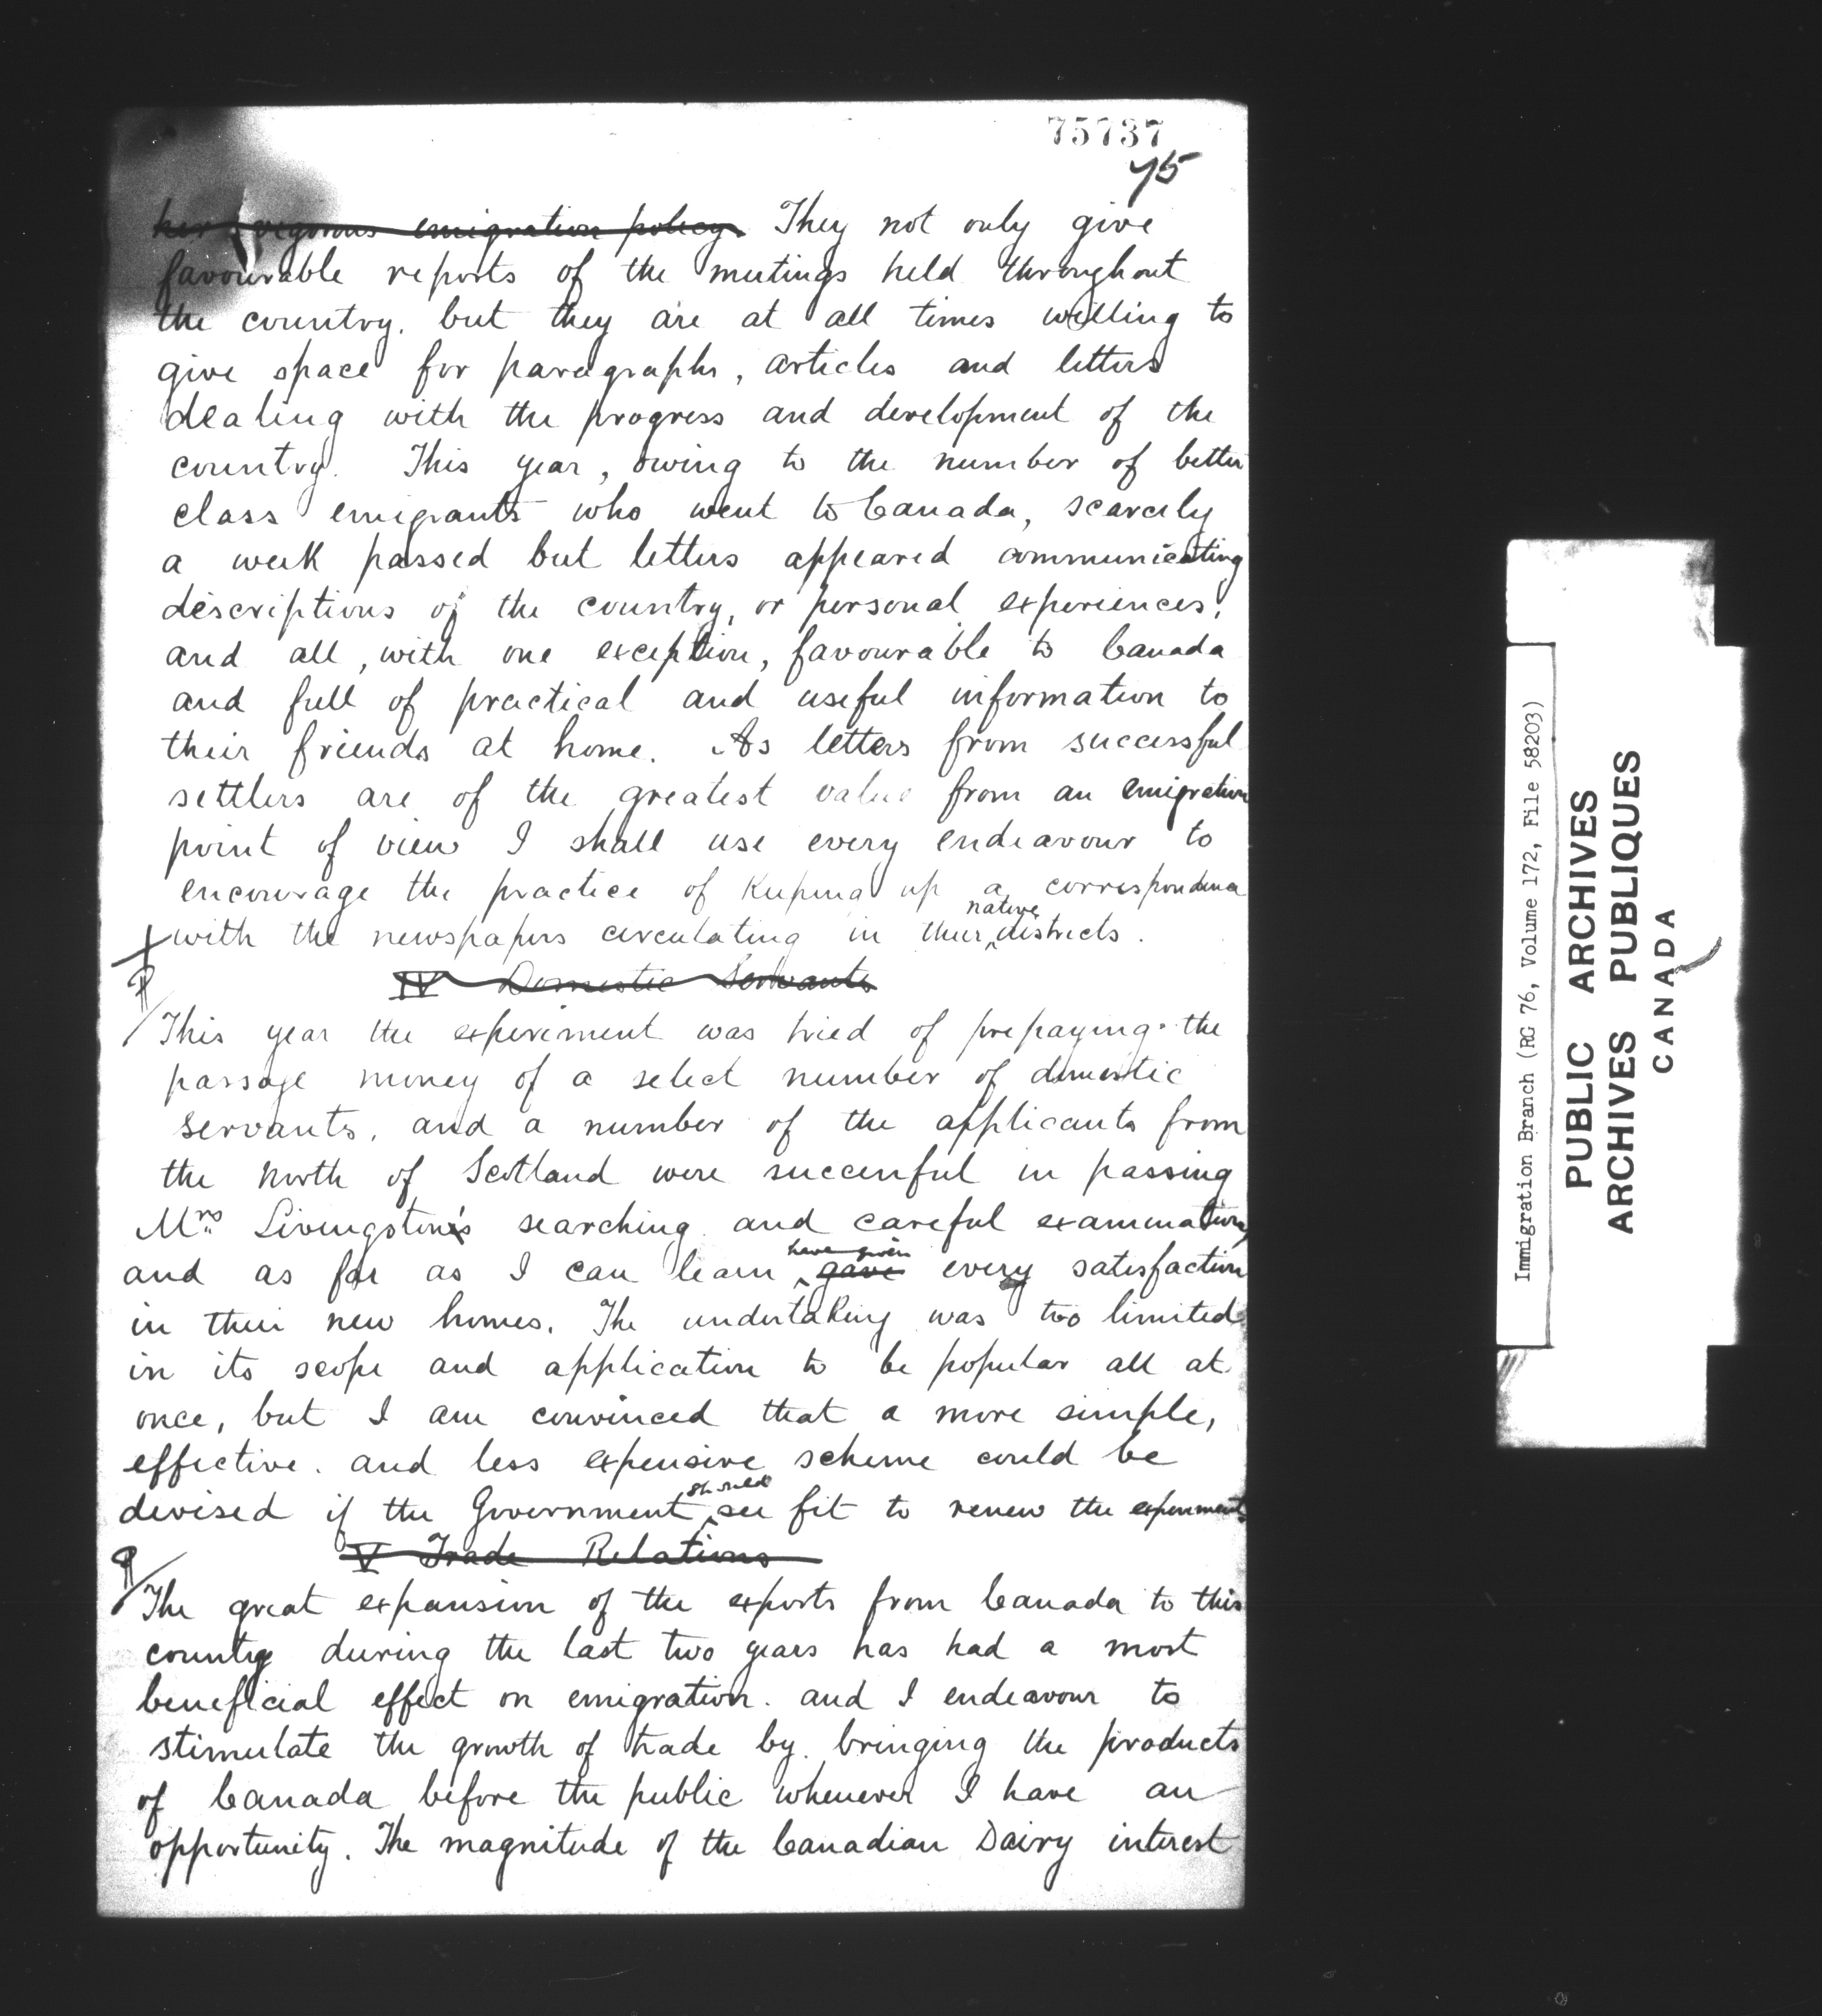 75737
75
her vigorous emigration policy. They not only give
favourable reports of the meetings held throughout
the country. but they are at all times willing to
give space for paragraphs, articles and letters
dealing with the progress and development of the
country. This year, owing to the number of better
class emigrants who went to Canada, scarcely
a week passed but letters appeared communicating
descriptions of the country, or personal experiences,
and all, with one exception, favourable to Canada
and full of practical and useful information to
their friends at home. As letters from successful
settlers are of the greatest value from an emigration
point of view I shall use every endeavour to
encourage the practice of keeping up a correspondence
native
with the newspapers circulating in their districts.
IV Domestic Servants
This year the experiment was tried of prepaying the
passage money of a select number of domestic
servants, and a number of the applicants from
the North of Scotland were successful in passing
Mrs Livingstone's searching and careful examination,
have given
and as far as I can learn gave every satisfaction
in their new homes. The undertaking was too limited
in its scope and application to be popular all at
once, but I am convinced that a more simple,
effective. and less expensive scheme could be
should
devised if the Government see fit to renew the experiment.
V Trade Relations
The great expansion of the exports from Canada to this
country during the last two years has had a most
beneficial effect on emigration. and I endeavour to
stimulate the growth of trade by bringing the products
of Canada before the public whenever I have an
opportunity. The magnitude of the Canadian Dairy interest
Immigration Branch (RG 76, Volume 172, File 58203)
PUBLIC ARCHIVES
ARCHIVES PUBLIQUES
CANADA